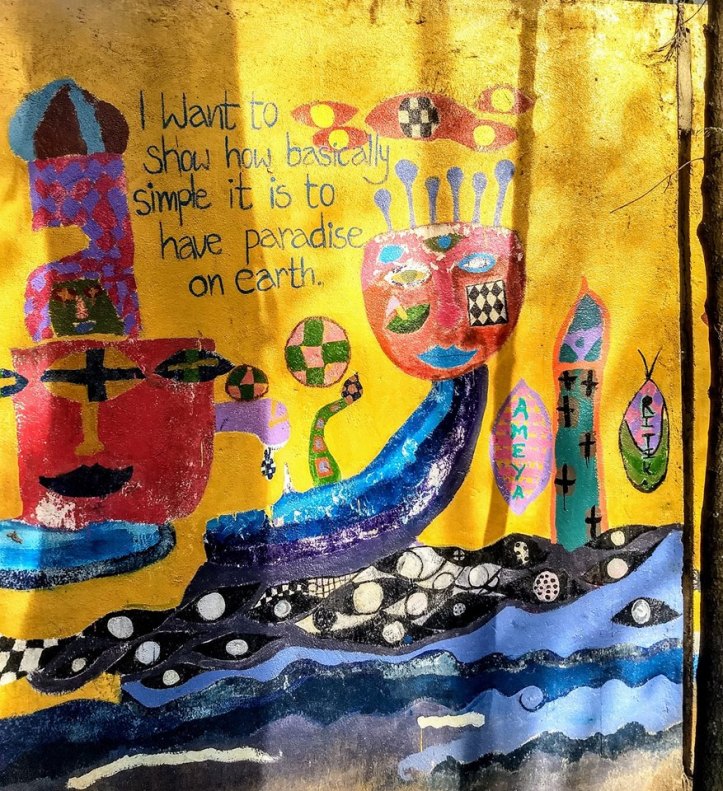 I Want to
show how basically
simple it is to
have paradise
on earth.
AMEYA
RITIKA